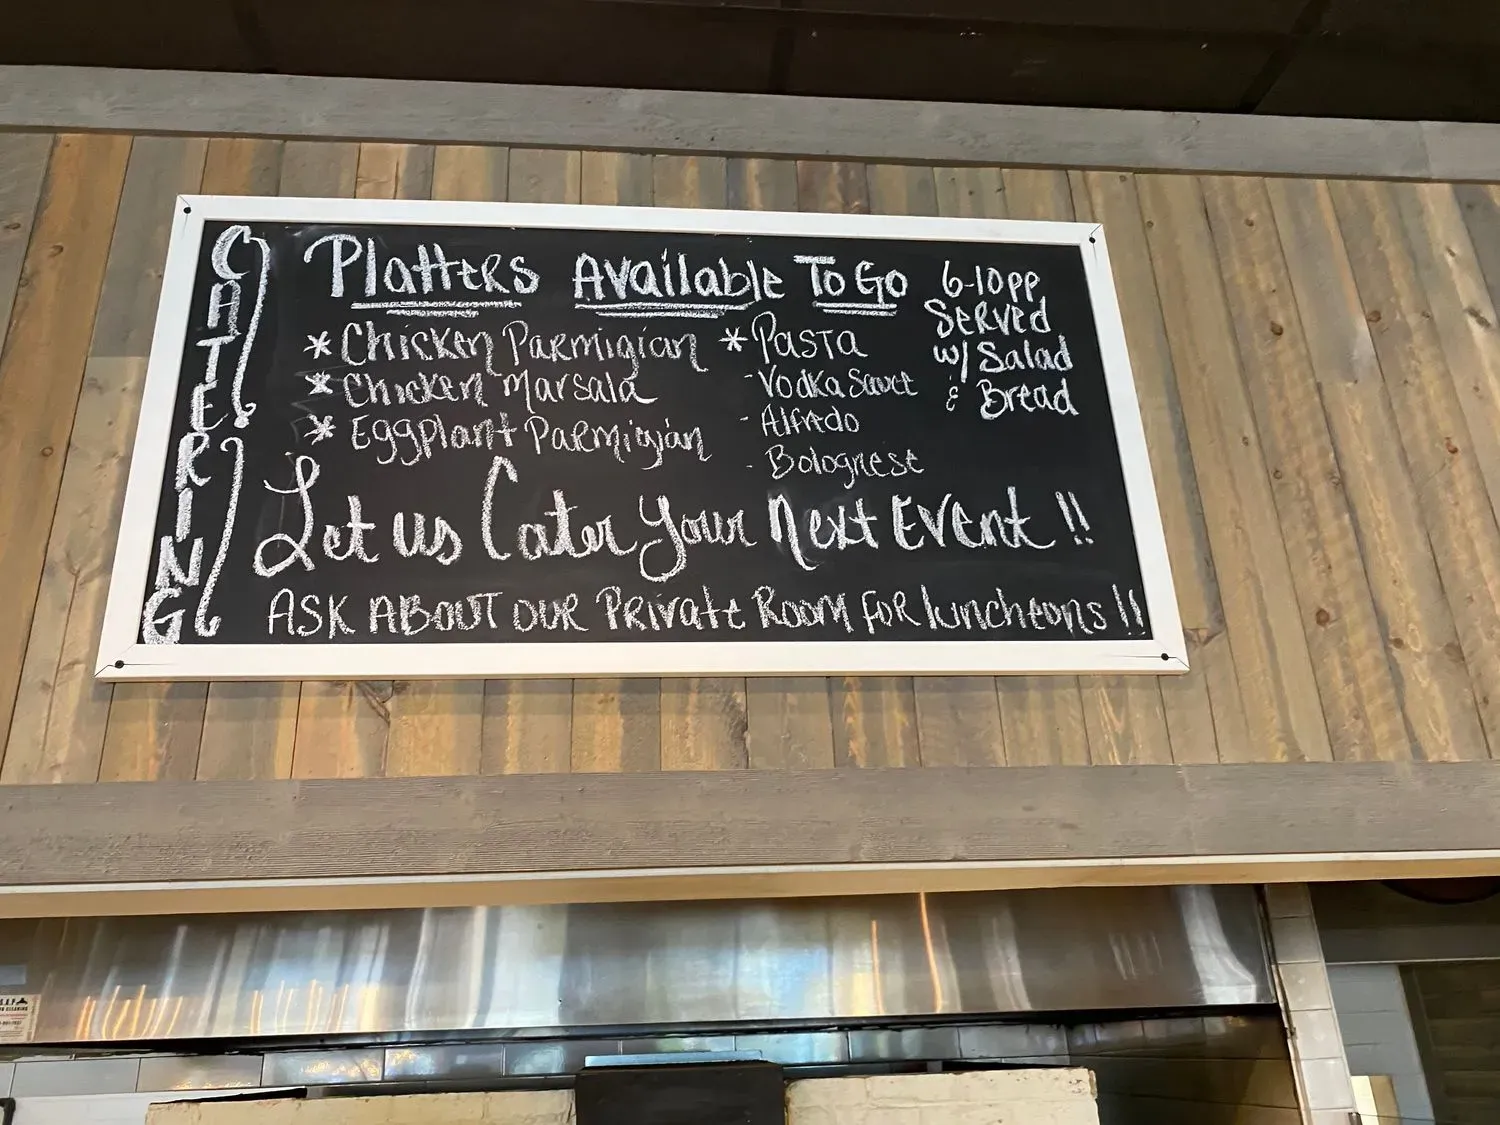 CATERING
Platters Available To Go
* Chicken Parmigian
* Chicken Marsala
* Eggplant Parmigian
* Pasta
- Vodka Sauce
- Alfredo
- Bolognese
6-10pp
Served
w/ Salad
& Bread
Let us Cater Your Next Event !!
ASK ABOUT OUR Private Room FOR luncheons !!